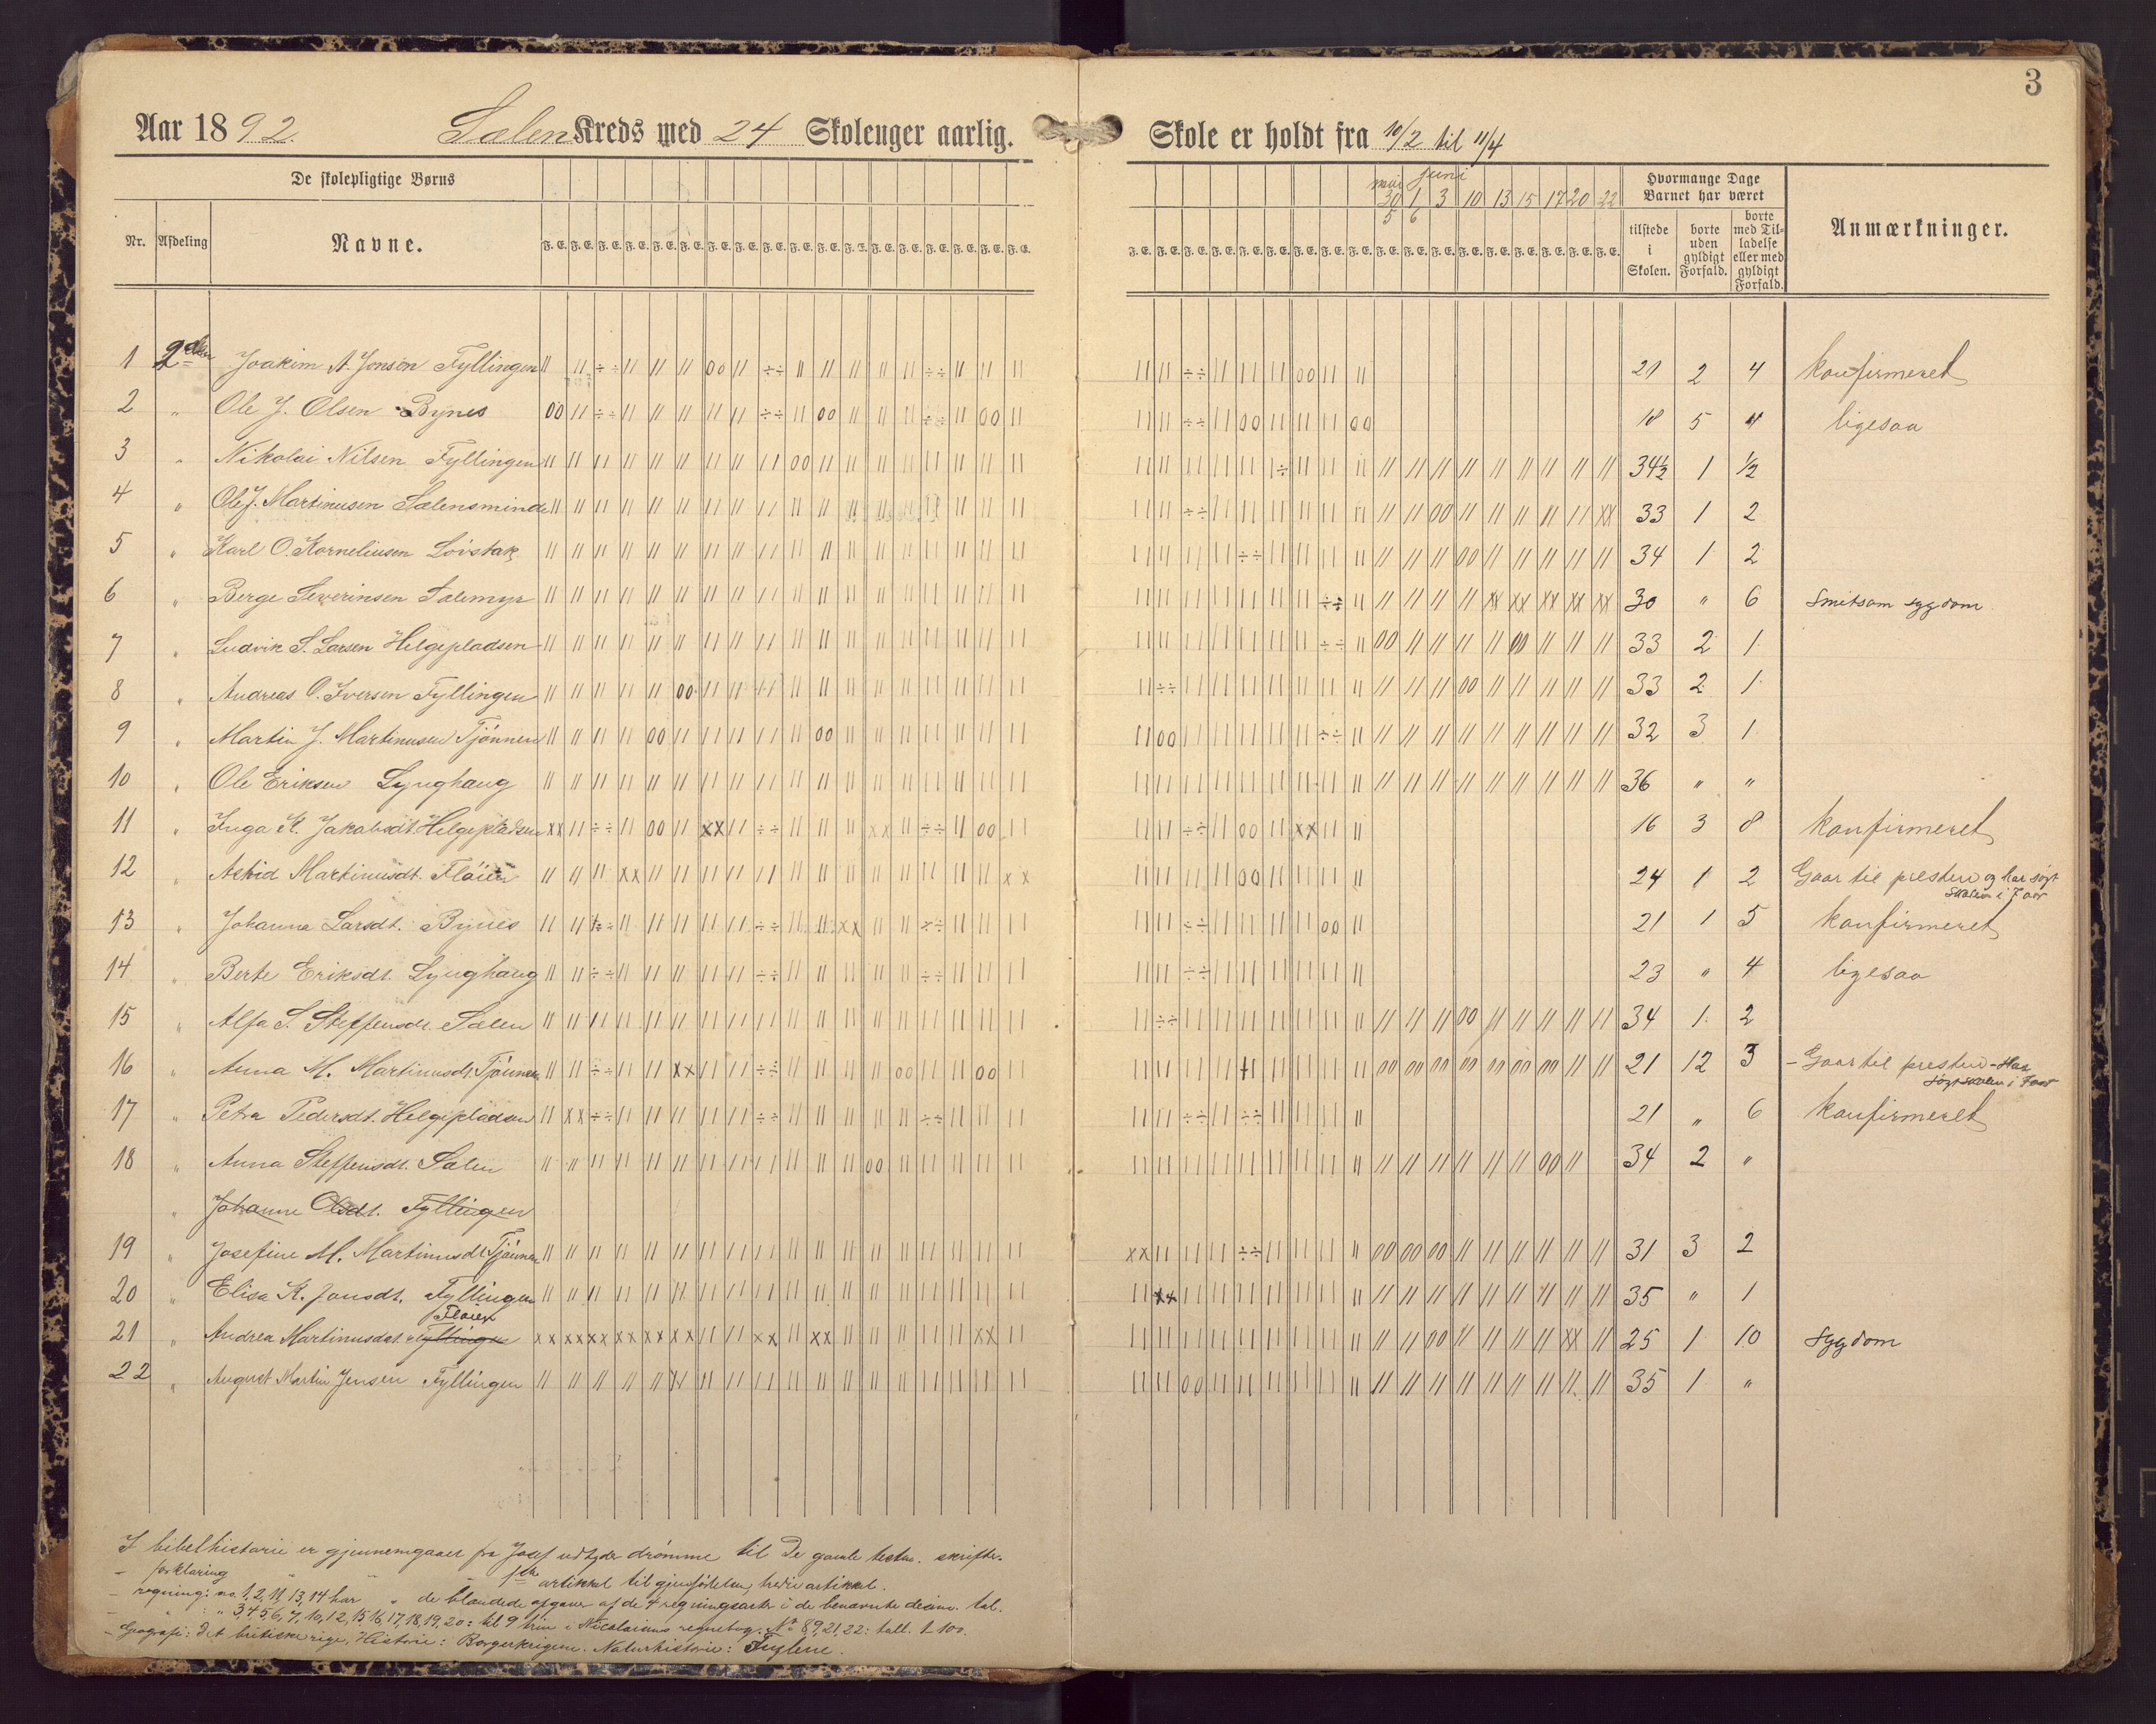 3
Aar 1892. Sælen Kreds med 24 Skoleuger aarlig. Skole er holdt fra 10/2 til 11/4
De skolepligtige Børns
mai juni
30 1 3 10 13 15 17 20 22
5 6
Hvormange Dage Barnet har været
Nr. Afdeling Navne. F. E. tilstede i Skolen. borte uden gyldigt Forfald. borte med Tilladelse eller med gyldigt Forfald. Anmærkninger.
1 2den Joakim A. Jonsen Fyllingen 21 2 4 konfirmeret
2 " Ole J. Olsen Bynes 18 5 4 ligesaa
3 " Nikolai Nilsen Fyllingen 34½ 1 ½
4 " Ole J. Martinusen Sælensminde 33 1 2
5 " Karl O. Korneliusen Løvstak 34 1 2
6 " Berge Severinsen Sælemyr 30 " 6 Smitsom sygdom
7 " Ludvik S. Larsen Helgepladsen 33 2 1
8 " Andreas O. Iversen Fyllingen 33 2 1
9 " Martin J. Martinusen Tjønnen 32 3 1
10 " Ole Eriksen Lynghaug 36 " "
11 " Inga K. Jakobsdt. Helgepladsen 16 3 8 konfirmeret
12 " Astrid Martinusdt. Fløien 24 1 2 Gaar til presten og har søgt
skolen i 7 aar
13 " Johanna Larsdt. Bynes 21 1 5 konfirmeret
14 " Berte Eriksdt. Lynghaug 23 " 4 ligesaa
15 " Alfa S. Steffensdt. Sælen 34 1 2
16 " Anna M. Martinusdt. Tjønnen 21 12 3 - Gaar til presten - Har
søgt skolen i 7 aar
17 " Petra Pedersdt. Helgepladsen 21 " 6 konfirmeret
18 " Anna Steffensdt. Sælen 34 2 "
" Johanne Olsdt. Fyllingen
19 " Josefine M. Martinusdt. Tjønnen 31 3 2
20 " Elisa K. Jonsdt. Fyllingen 35 " 1
Fløien
21 " Andrea Martinusdat. Fyllingen 25 1 10 Sygdom
22 " August Martin Jensen Fyllingen 35 1 "
I bibelhistorie er gjennemgaaet fra Josef udtyder drømme til De gamle testm. skrifter.
- forklaring " " " 1ste artikkel til gjenfødelsen, tredie artikkel.
- regning: no. 1, 2, 11, 13, 14 har " de blandede opgaver af de 4 regningsarter i de benævnte desim. tal.
- " : " 3, 4 5 6, 7, 10, 12, 15 16, 17, 18, 19, 20: til 9 trin i Nicolaisens regnebog. No 8, 9, 21, 22: tall. 1-100.
- Geografi: Det britiske rige. Historie: Borgerkrigene. Naturhistorie: Fuglene.